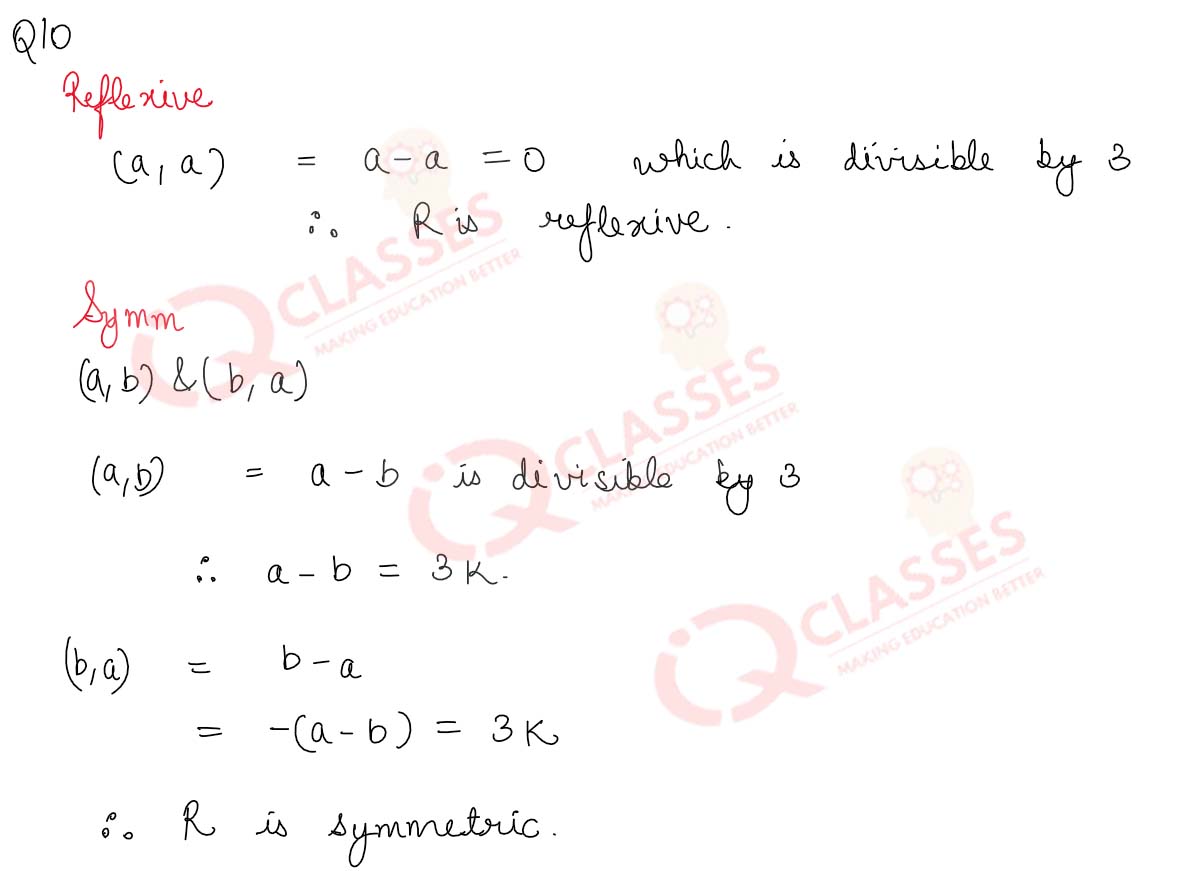 Q10
Reflexive
(a, a) = a - a = 0 which is divisible by 3
∴ R is reflexive.
Symm
(a, b) & (b, a)
(a, b) = a - b is divisible by 3
∴ a - b = 3K.
(b, a) = b - a
= -(a - b) = 3K
∴ R is symmetric.
IQ CLASSES
MAKING EDUCATION BETTER
IQ CLASSES
MAKING EDUCATION BETTER
IQ CLASSES
MAKING EDUCATION BETTER